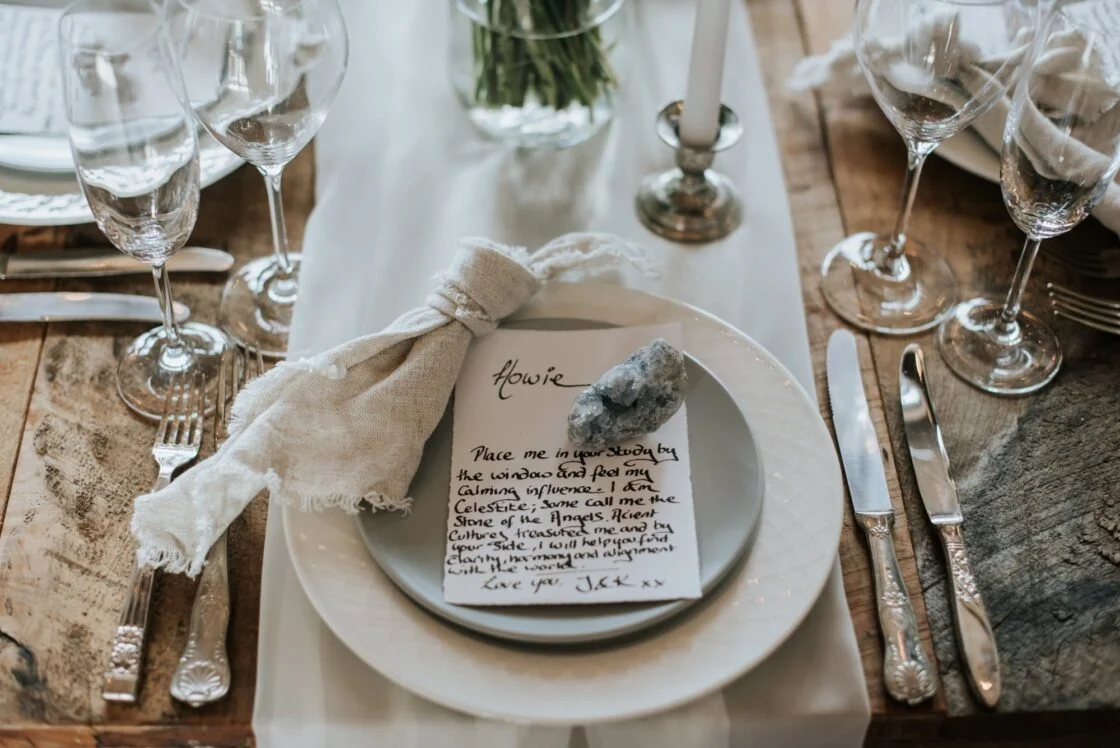 Howie
Place me in your Study by
the window and feel my
Calming influence. I am
Celestite; Some call me the
Stone of the Angels. Acient
Cultures treasured me and by
your Side, I will help you find
Clarity, harmony and alignment
with the world.
Love you. J&K xx